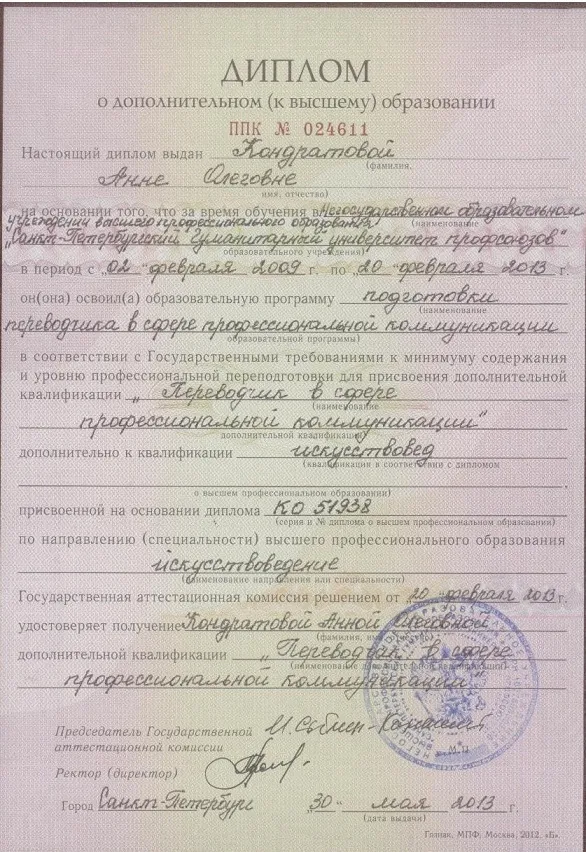 ДИПЛОМ
о дополнительном (к высшему) образовании
ППК № 024611
Настоящий диплом выдан Кондратовой
(фамилия,
Анне Олеговне
имя, отчество)
на основании того, что за время обучения в Негосударственном образовательном
(наименование
учреждении высшего профессионального образования
„Санкт-Петербургский Гуманитарный университет профсоюзов"
образовательного учреждения)
в период с „02" февраля 2009 г. по „20" февраля 2013 г.
он(она) освоил(а) образовательную программу подготовки
(наименование
переводчика в сфере профессиональной коммуникации
образовательной программы)
в соответствии с Государственными требованиями к минимуму содержания
и уровню профессиональной переподготовки для присвоения дополнительной
квалификации „Переводчик в сфере
(наименование
профессиональной коммуникации"
дополнительной квалификации)
дополнительно к квалификации искусствовед
(квалификация в соответствии с дипломом
о высшем профессиональном образовании)
присвоенной на основании диплома КО 51938
(серия и № диплома о высшем профессиональном образовании)
по направлению (специальности) высшего профессионального образования
искусствоведение
(наименование направления или специальности)
Государственная аттестационная комиссия решением от „20" февраля 2013 г.
удостоверяет получение Кондратовой Анной Олеговной
(фамилия, имя, отчество)
дополнительной квалификации „Переводчик в сфере
(наименование дополнительной квалификации)
профессиональной коммуникации"
Председатель Государственной
аттестационной комиссии
М.П.
Ректор (директор)
Город Санкт-Петербург „30" мая 2013 г.
(дата выдачи)
Гознак, МПФ, Москва, 2012, «Б».